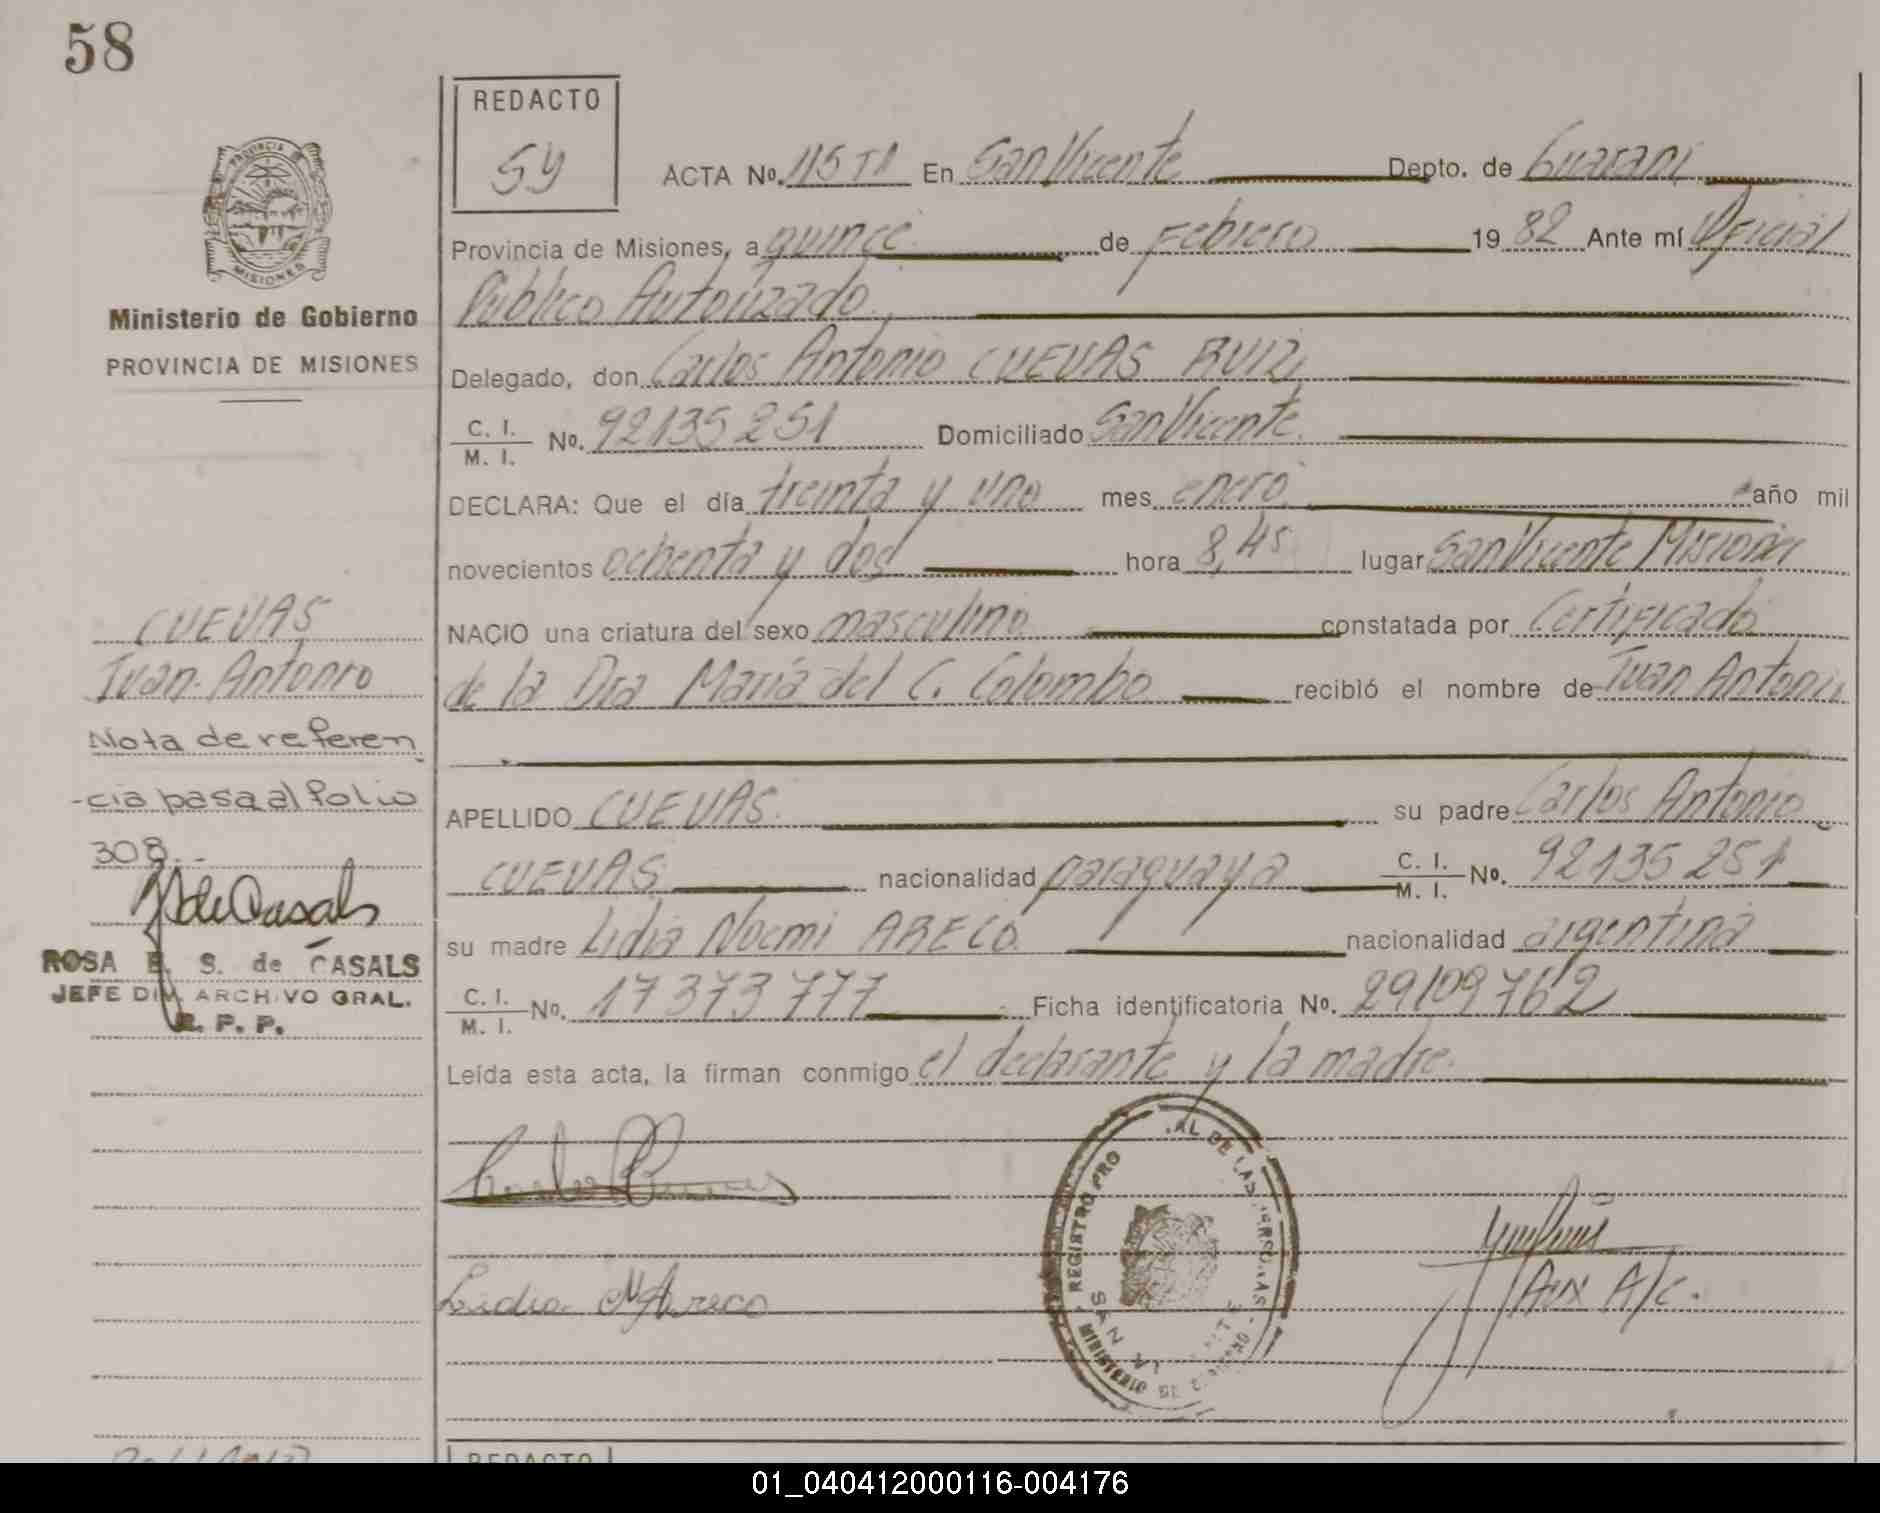 58
PROVINCIA
MISIONES
Ministerio de Gobierno
PROVINCIA DE MISIONES
CUEVAS
Juan Antonio
Nota de referen
-cia pasa al folio
308.-
ROSA E. S. de CASALS
JEFE DIV. ARCHIVO GRAL.
R. P. P.
REDACTO
59
ACTA No. 115 TI En San Vicente Depto. de Guaraní
Provincia de Misiones, a quince de Febrero 1982 Ante mí Oficial
Público Autorizado
Delegado, don Carlos Antonio CUEVAS RUIZ
C. I. / M. I. No. 92135251 Domiciliado San Vicente
DECLARA: Que el día treinta y uno mes enero año mil
novecientos ochenta y dos hora 8,45 lugar San Vicente Misiones
NACIO una criatura del sexo masculino constatada por Certificado
de la Dra María del C. Colombo recibió el nombre de Juan Antonio
APELLIDO CUEVAS su padre Carlos Antonio
CUEVAS nacionalidad paraguaya C. I. / M. I. No. 92135251
su madre Lidia Noemi ARECO nacionalidad argentina
C. I. / M. I. No. 17373777 Ficha identificatoria No. 29109762
Leída esta acta, la firman conmigo el declarante y la madre.
Lidia N Areco
Aux A/C.
REDACTO
01_040412000116-004176